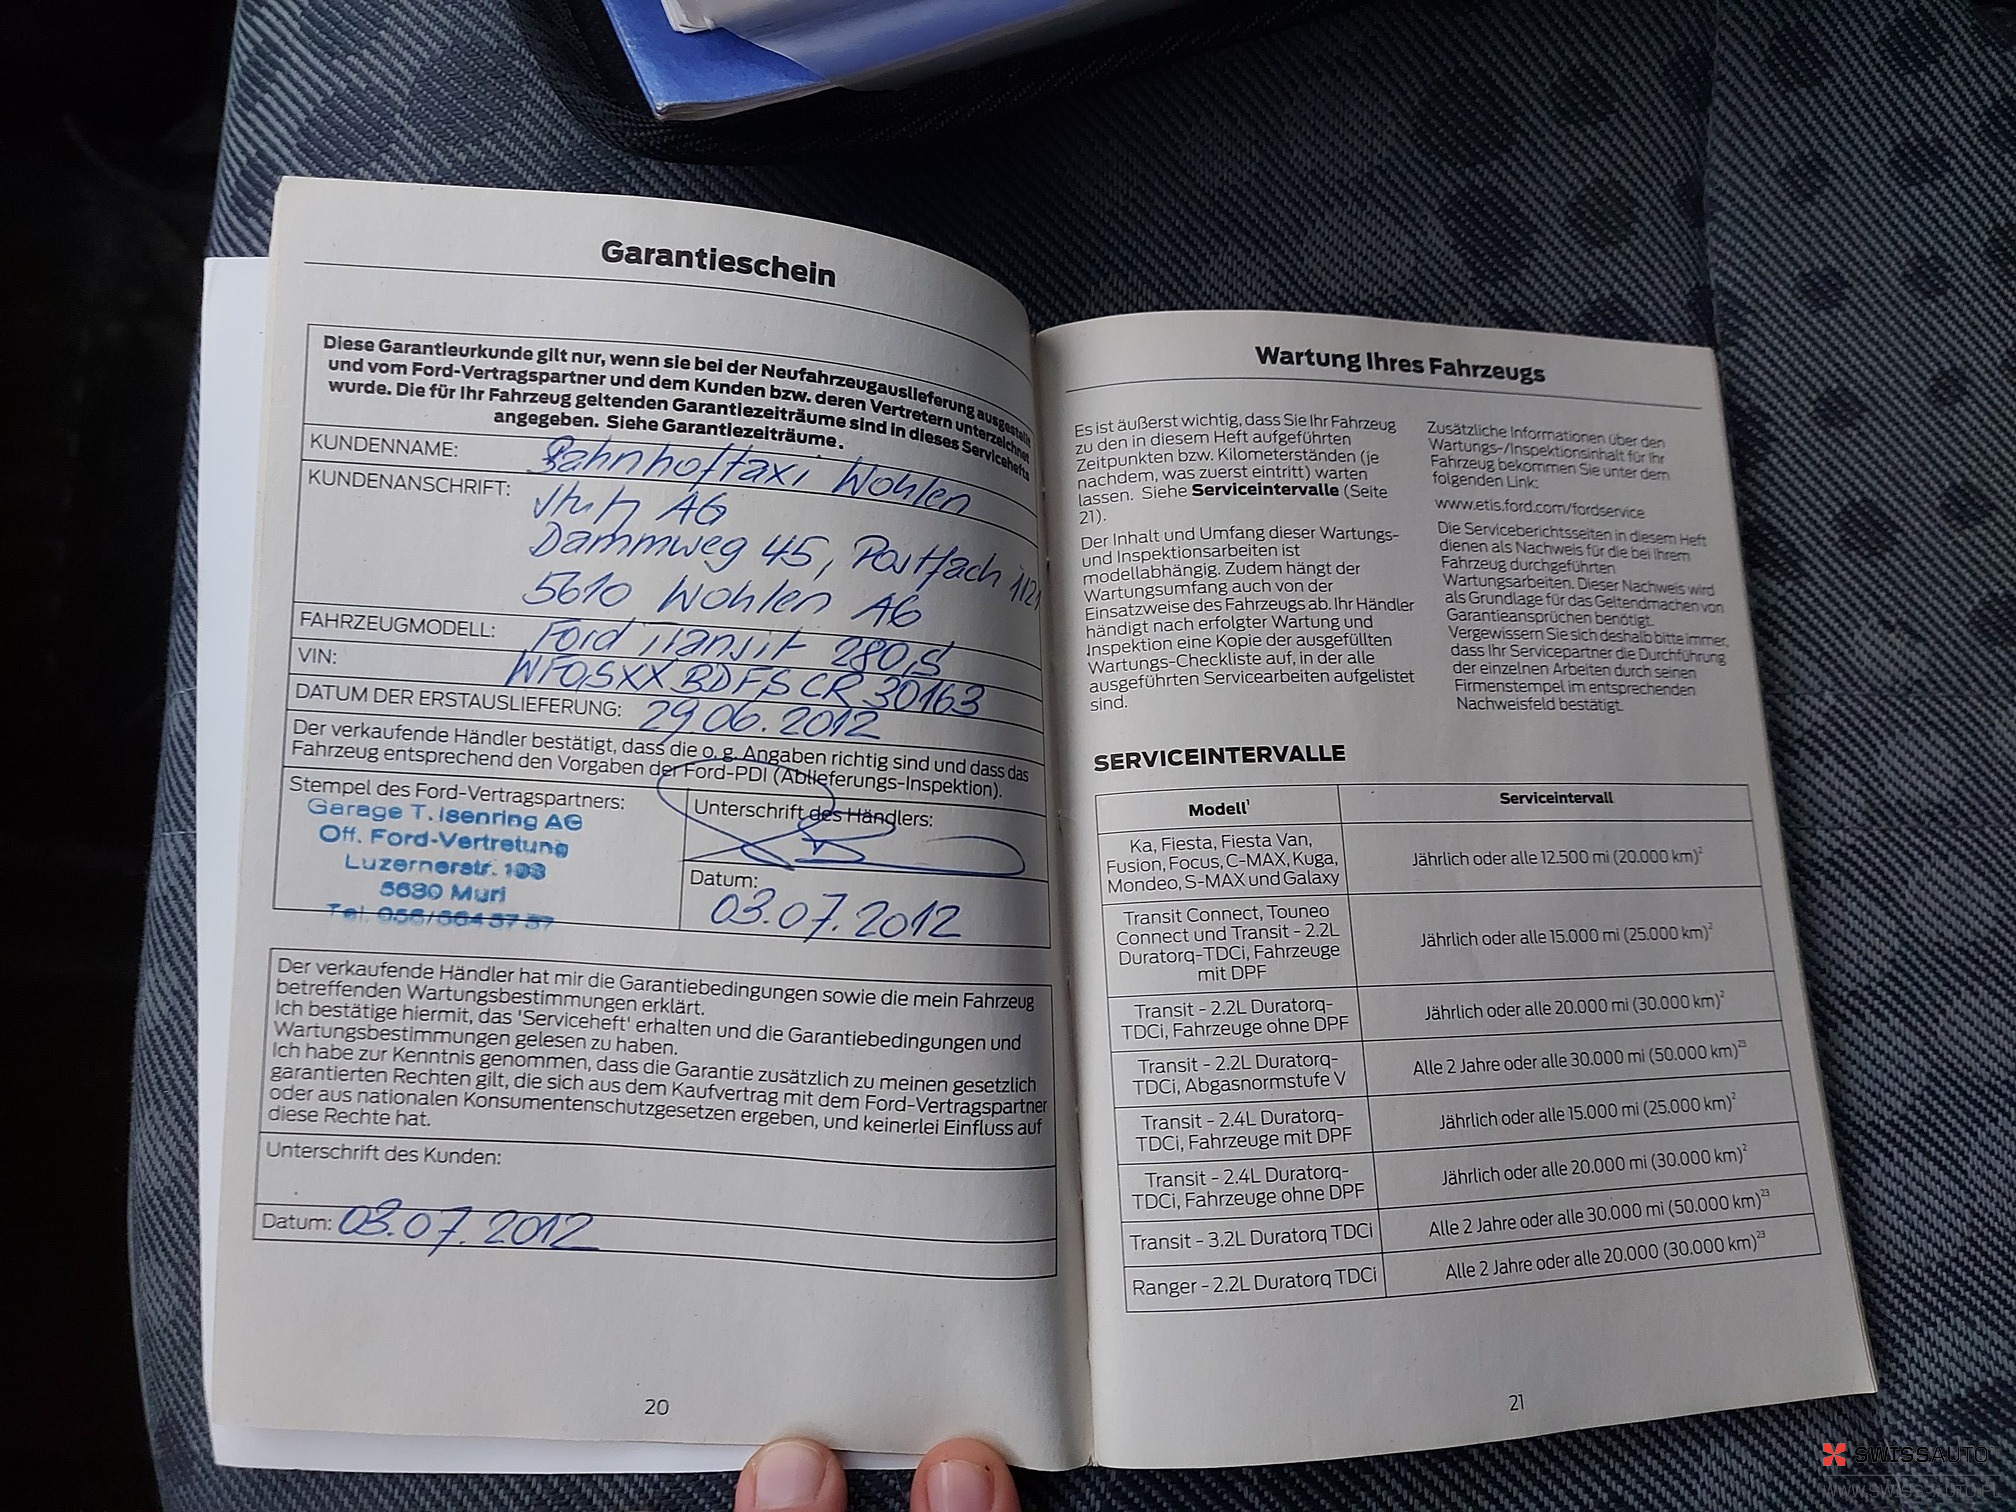 Garantieschein
Diese Garantieurkunde gilt nur, wenn sie bei der Neufahrzeugauslieferung ausgestellt
und vom Ford-Vertragspartner und dem Kunden bzw. deren Vertretern unterzeichnet
wurde. Die für Ihr Fahrzeug geltenden Garantiezeiträume sind in dieses Serviceheft
angegeben. Siehe Garantiezeiträume.
KUNDENNAME: Bahnhoftaxi Wohlen
KUNDENANSCHRIFT: AG
Dammweg 45, Postfach 1121
5610 Wohlen AG
FAHRZEUGMODELL: Ford Transit 280S
VIN: WF0SXXBDFSCR30163
DATUM DER ERSTAUSLIEFERUNG: 29.06.2012
Der verkaufende Händler bestätigt, dass die o. g. Angaben richtig sind und dass das
Fahrzeug entsprechend den Vorgaben der Ford-PDI (Ablieferungs-Inspektion).
Stempel des Ford-Vertragspartners:
Garage T. Isenring AG
Off. Ford-Vertretung
Luzernerstr. 193
5630 Muri
Tel. 056/664 37 37
Unterschrift des Händlers:
Datum:
03.07.2012
Der verkaufende Händler hat mir die Garantiebedingungen sowie die mein Fahrzeug
betreffenden Wartungsbestimmungen erklärt.
Ich bestätige hiermit, das 'Serviceheft' erhalten und die Garantiebedingungen und
Wartungsbestimmungen gelesen zu haben.
Ich habe zur Kenntnis genommen, dass die Garantie zusätzlich zu meinen gesetzlich
garantierten Rechten gilt, die sich aus dem Kaufvertrag mit dem Ford-Vertragspartner
oder aus nationalen Konsumentenschutzgesetzen ergeben, und keinerlei Einfluss auf
diese Rechte hat.
Unterschrift des Kunden:
Datum: 03.07.2012
20
Wartung Ihres Fahrzeugs
Es ist äußerst wichtig, dass Sie Ihr Fahrzeug
zu den in diesem Heft aufgeführten
Zeitpunkten bzw. Kilometerständen (je
nachdem, was zuerst eintritt) warten
lassen. Siehe Serviceintervalle (Seite
21).
Der Inhalt und Umfang dieser Wartungs-
und Inspektionsarbeiten ist
modellabhängig. Zudem hängt der
Wartungsumfang auch von der
Einsatzweise des Fahrzeugs ab. Ihr Händler
händigt nach erfolgter Wartung und
Inspektion eine Kopie der ausgefüllten
Wartungs-Checkliste auf, in der alle
ausgeführten Servicearbeiten aufgelistet
sind.
Zusätzliche Informationen über den
Wartungs-/Inspektionsinhalt für Ihr
Fahrzeug bekommen Sie unter dem
folgenden Link:
www.etis.ford.com/fordservice
Die Serviceberichtsseiten in diesem Heft
dienen als Nachweis für die bei Ihrem
Fahrzeug durchgeführten
Wartungsarbeiten. Dieser Nachweis wird
als Grundlage für das Geltendmachen von
Garantieansprüchen benötigt.
Vergewissern Sie sich deshalb bitte immer,
dass Ihr Servicepartner die Durchführung
der einzelnen Arbeiten durch seinen
Firmenstempel im entsprechenden
Nachweisfeld bestätigt.
SERVICEINTERVALLE
Modell¹ Serviceintervall
Ka, Fiesta, Fiesta Van,
Fusion, Focus, C-MAX, Kuga,
Mondeo, S-MAX und Galaxy
Jährlich oder alle 12.500 mi (20.000 km)²
Transit Connect, Touneo
Connect und Transit - 2.2L
Duratorq-TDCi, Fahrzeuge
mit DPF
Jährlich oder alle 15.000 mi (25.000 km)²
Transit - 2.2L Duratorq-
TDCi, Fahrzeuge ohne DPF
Jährlich oder alle 20.000 mi (30.000 km)²
Transit - 2.2L Duratorq-
TDCi, Abgasnormstufe V
Alle 2 Jahre oder alle 30.000 mi (50.000 km)²³
Transit - 2.4L Duratorq-
TDCi, Fahrzeuge mit DPF
Jährlich oder alle 15.000 mi (25.000 km)²
Transit - 2.4L Duratorq-
TDCi, Fahrzeuge ohne DPF
Jährlich oder alle 20.000 mi (30.000 km)²
Transit - 3.2L Duratorq TDCi Alle 2 Jahre oder alle 30.000 mi (50.000 km)²³
Ranger - 2.2L Duratorq TDCi Alle 2 Jahre oder alle 20.000 (30.000 km)²³
21
SWISSAUTO
WWW.SWISSAUTO.PL